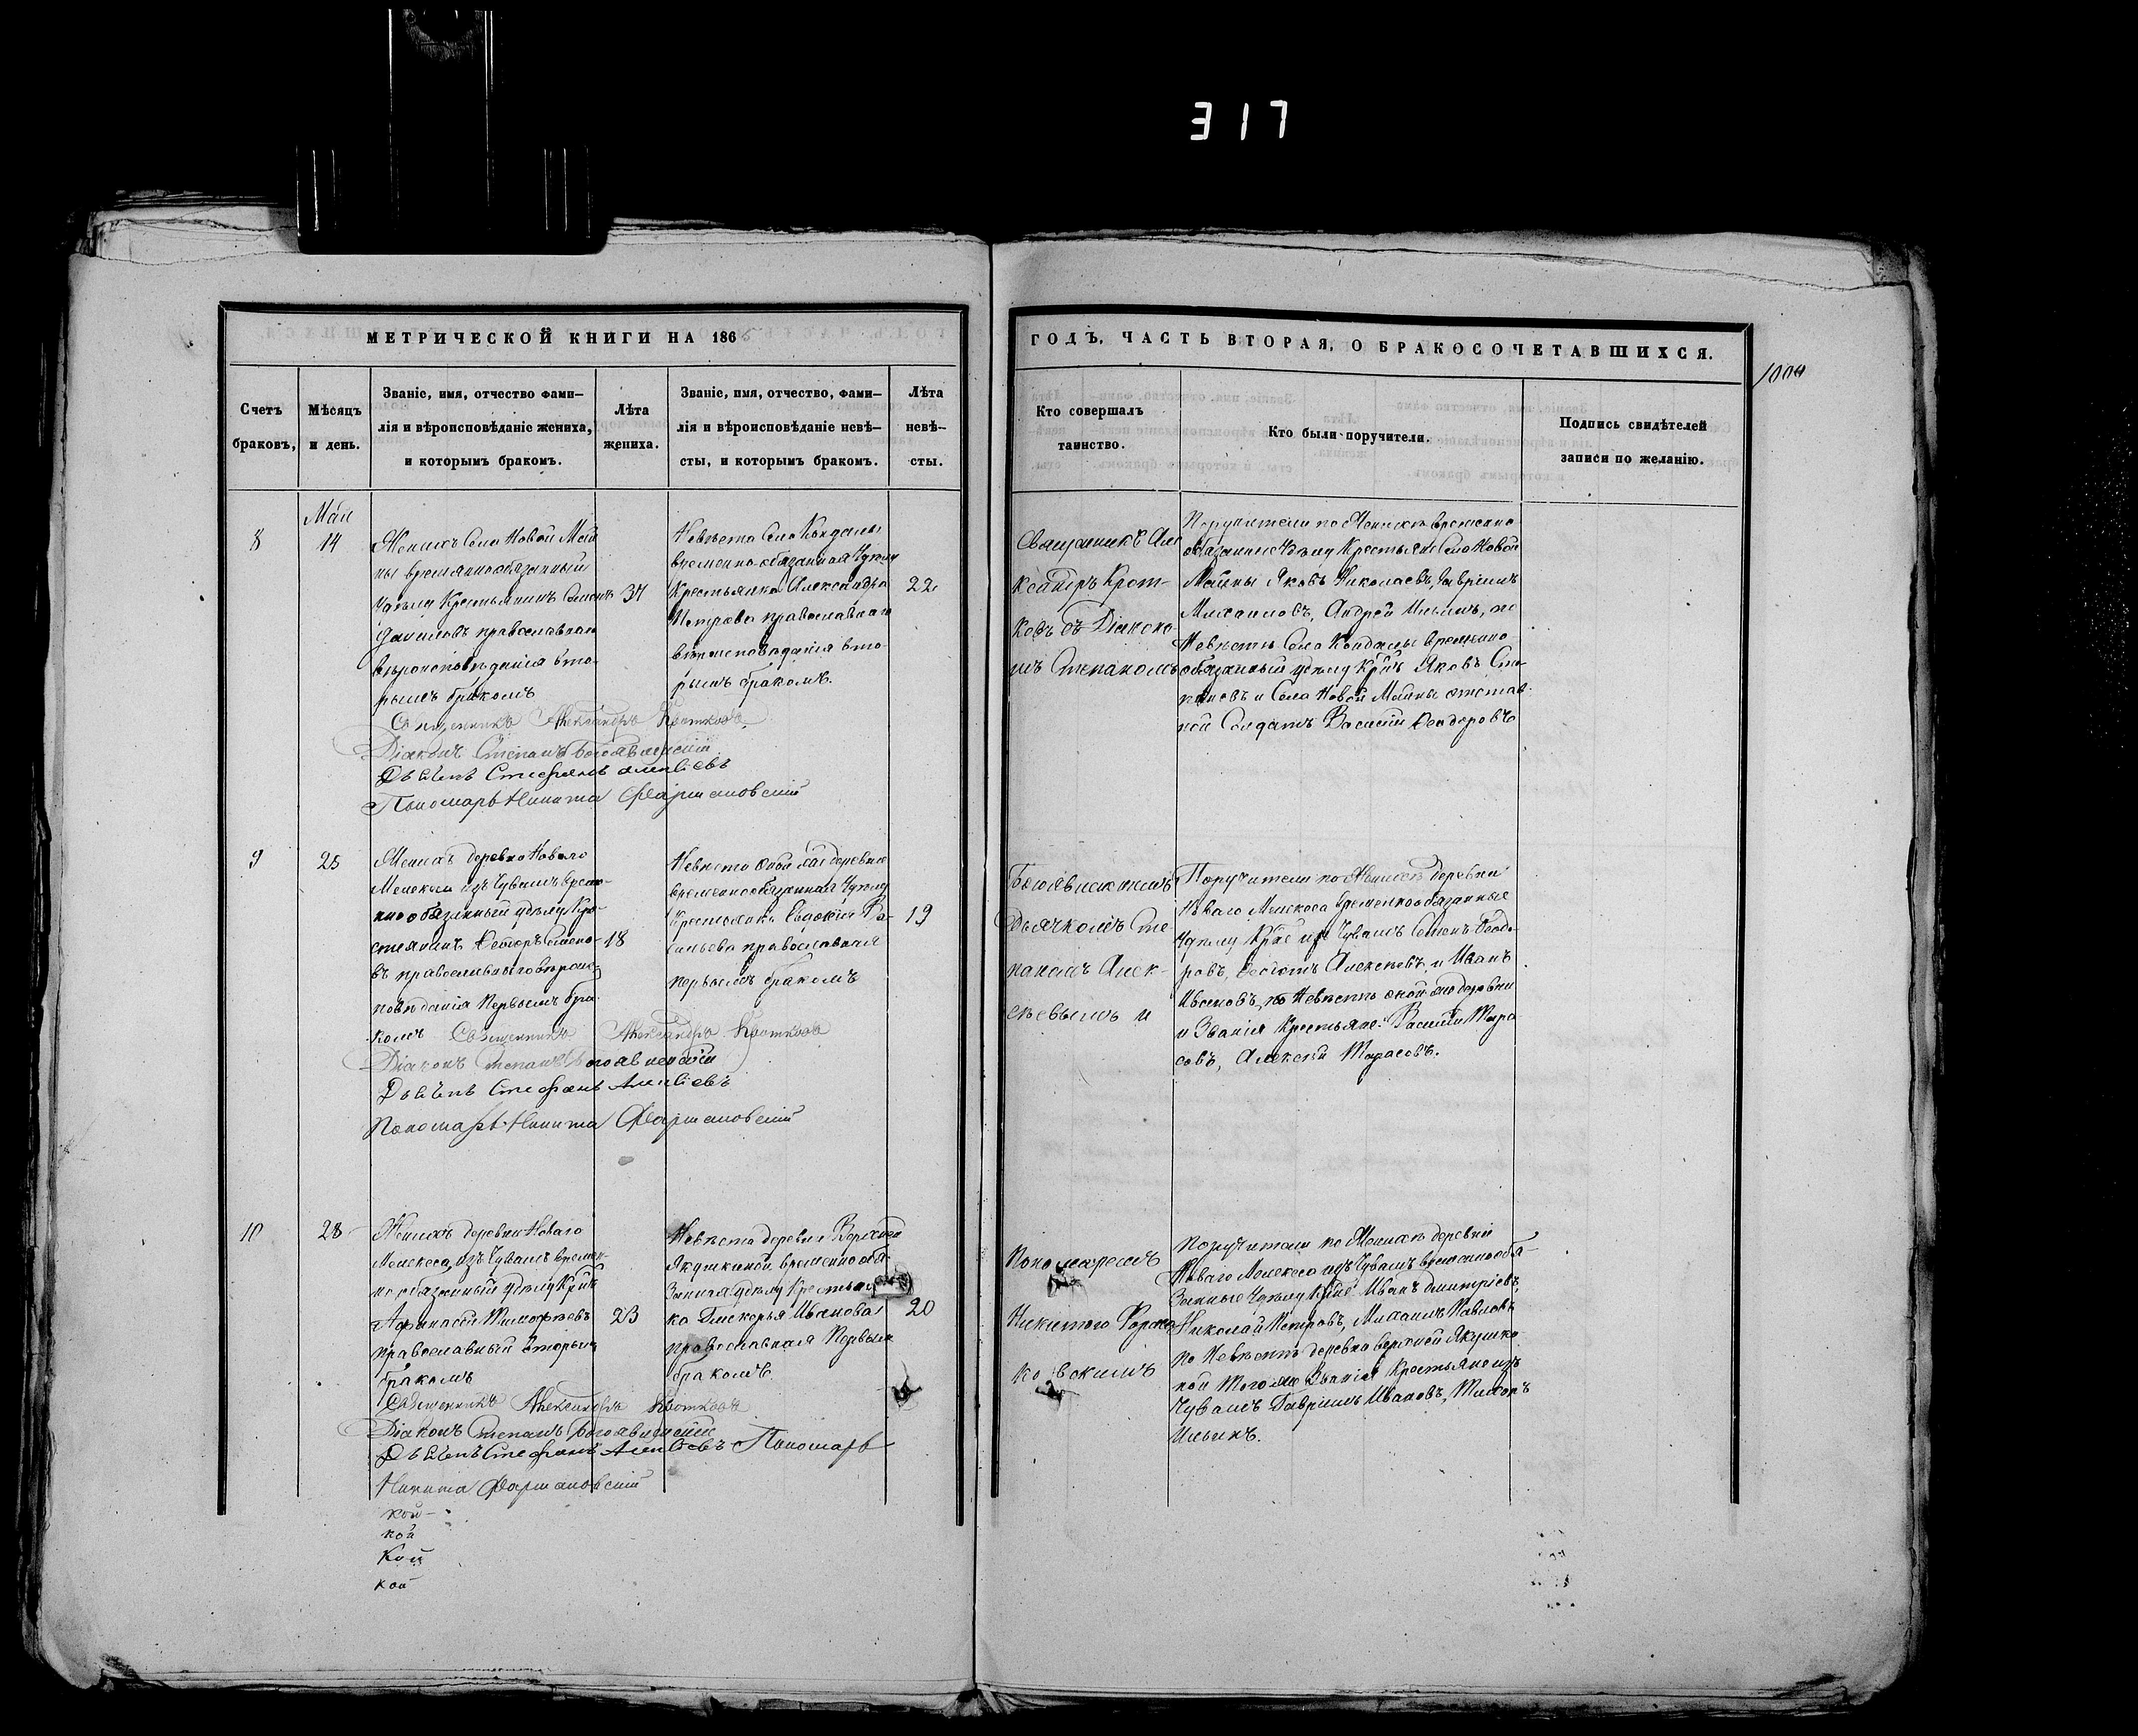 317
МЕТРИЧЕСКОЙ КНИГИ НА 186
ГОДЪ, ЧАСТЬ ВТОРАЯ, О БРАКОСОЧЕТАВШИХСЯ.
Счетъ
браковъ,
Мѣсяцъ
и день.
Званіе, имя, отчество фами–
лія и вѣроисповѣданіе жениха,
и которымъ бракомъ.
Лѣта
жениха.
Званіе, имя, отчество, фами–
лія и вѣроисповѣданіе невѣ–
сты, и которымъ бракомъ.
Лѣта
невѣ–
сты.
Кто совершалъ
таинство.
Кто были поручители.
Подпись свидѣтелей
записи по желанію.
8
Мая
14
Женихъ Села Новой Май
ны временнообязанный
Удѣлу Крестьянинъ
православнаго
вѣроисповѣданія вто-
рымъ бракомъ
Священникъ Александръ Кротковъ
Діаконъ Степанъ Богоявленскій
Стефанъ
Пономарь Никита
Невѣста Села Кандалы
временно-обязанная Удѣлу
Крестьянка Александра
Петрова православнаго
вѣроисповѣданія вто-
рымъ бракомъ.
22
Священникъ Але
ксандръ Крот-
ковъ съ Діаконо-
мъ Степаномъ
Поручители по Женихѣ временно
обязанные Удѣлу Крестьяне Села Новой
Майны Яковъ Николаевъ, Гавріилъ
Михаиловъ, Андрей Ильинъ, по
Невѣстѣ Села Кандалы временно
обязанный удѣлу Яковъ Сте-
пановъ и Села Новой Майны отстав-
ной Солдатъ Василій Ѳеодоровъ
9
25
Женихъ деревни Новаго
Мелекеса изъ Чувашъ време-
ннообязанный удѣлу Кре-
стьянинъ
въ православнаго вѣроис-
повѣданія первымъ бра-
комъ Священникъ Александръ Кротковъ
Діаконъ Степанъ Богоявленскій
Стефанъ
Пономарь Никита
18
Невѣста оной же деревни
временнообязанная Удѣлу
Крестьянка Евдокія Ва-
сильева православная
первымъ бракомъ
19
Богоявленскимъ
Дьячкомъ Сте-
паномъ Алек-
сѣевымъ и
Поручители по Женихѣ деревни
Новаго Мелекеса временнообязанные
Удѣлу изъ Чувашъ Семенъ Ѳеодо-
ровъ, Алексѣевъ и Иванъ
Ивановъ, по Невѣстѣ оной же деревни
и Званія Крестьяне: Василій Тара
совъ, Алексѣй Тарасовъ.
10
28
Женихъ деревни Новаго
Мелекеса изъ Чувашъ времен-
но обязанный удѣлу
Афанасій Тимофѣевъ
православный вторымъ
бракомъ
Священникъ Александръ Кротковъ
Діаконъ Степанъ Богоявленскій
Стефанъ Пономарь
Никита
23
Невѣста деревни Верхней
Якушкиной временнообя-
занная удѣлу Крестьян
ка Гликерья Иванова
православная Первымъ
бракомъ.
20
Пономаремъ
Никитою
Поручители по Женихѣ деревни
Новаго Мелекеса изъ Чувашъ временнообя-
занные Удѣлу Иванъ Дмитріевъ,
Николай Петровъ, Михаилъ Павловъ
по Невѣстѣ деревни верхней Якушки
ной того же Званія Крестьяне изъ
Чувашъ Гавріилъ Ивановъ,
Ильинъ.
кой
кой
кой
кой